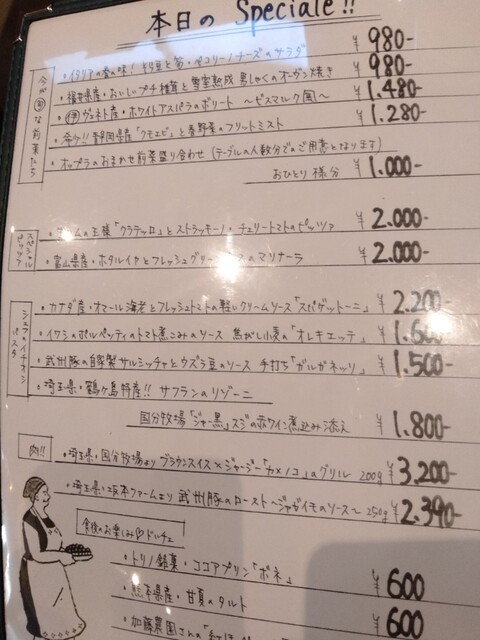 本日の Speciale!!
今が旬な前菜たち
・イタリアの春の味! そら豆と筍・ペコリーノチーズのサラダ ¥980-
・福井県産・おいしいプチ椎茸と雪室熟成 男しゃくのオーブン焼き ¥980-
・伊 ヴェネト産・ホワイトアスパラのボリート ～ビスマルク風～ ¥1.480-
・希少!! 静岡県産「クモエビ」と春野菜のフリットミスト ¥1.280-
・オップラのおまかせ前菜盛り合わせ (テーブルの人数分でのご用意となります)
おひとり様分 ¥1.000-
スペシャルピッツァ
の王様「クラテッロ」とストラッキーノ・チェリートマトのピッツァ ¥2.000-
・富山県産・ホタルイカとフレッシュグリー のマリナーラ ¥2.000-
シェフのイチオシパスタ
・カナダ産・オマール海老とフレッシュトマトの軽いクリームソース「スパゲットーニ」 ¥2.200-
・イワシのポルペッティのトマト煮こみのソース 焦がし小麦の「オレキエッテ」 ¥1.600-
・武州豚の自家製サルシッチャとウズラ豆のソース 手打ち「ガルガネッリ」 ¥1.500-
・埼玉県・鶴ヶ島特産!! サフランのリゾーニ
国分牧場「ジャー黒」スジの赤ワイン煮込み添え ¥1.800-
肉!!
・埼玉県・国分牧場より ブラウンスイス×ジャージー「カメノコ」のグリル 200g ¥3,200-
・埼玉県・坂本ファームより 武州豚のロースト～ジャガイモのソース～ 250g ¥2.390-
食後のお楽しみ♡ドルチェ
・トリノ銘菓・ココアプリン「ボネ」 ¥600
・熊本県産・甘夏のタルト ¥600
・加藤農園さんの